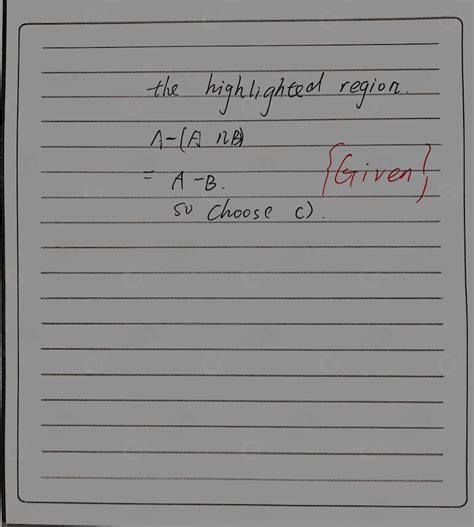 the highlighted region.
A-(A ∩B)
= A-B. {Given}
so choose c).